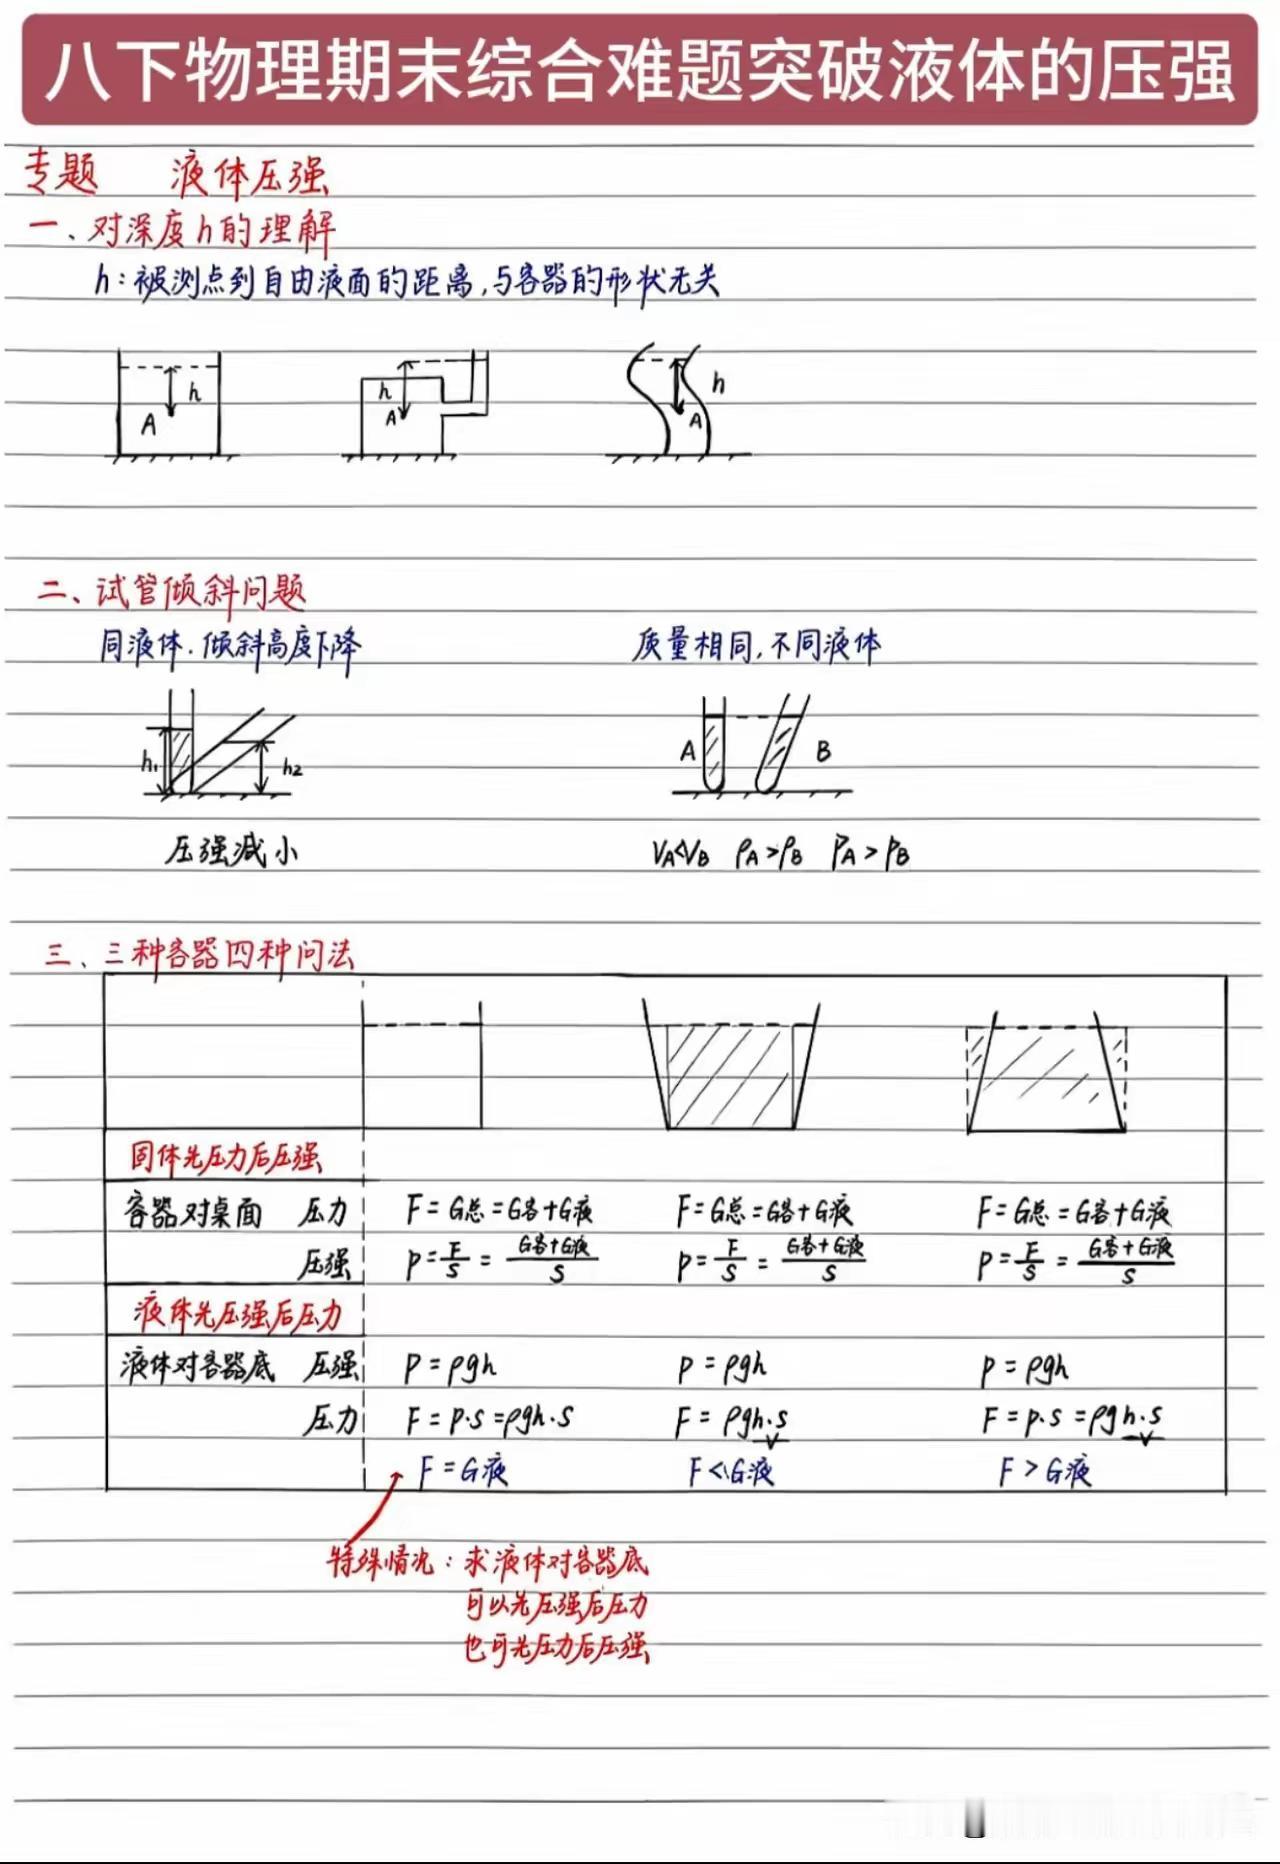 八下物理期末综合难题突破液体的压强
专题 液体压强
一、对深度h的理解
h:被测点到自由液面的距离,与容器的形状无关
h A
h A
h A
二、试管倾斜问题
同液体.倾斜高度下降 质量相同,不同液体
h₁ h₂ A B
压强减小 VA<VB ρA>ρB PA>PB
三、三种容器四种问法
固体先压力后压强
容器对桌面 压力 F=G总=G容+G液 F=G总=G容+G液 F=G总=G容+G液
压强 P=F/S=(G容+G液)/S P=F/S=(G容+G液)/S P=F/S=(G容+G液)/S
液体先压强后压力
液体对容器底 压强 P=ρgh P=ρgh P=ρgh
压力 F=P·S=ρgh·S F=ρgh·S F=P·S=ρgh·S
V V
F=G液 F<G液 F>G液
特殊情况:求液体对容器底
可以先压强后压力
也可先压力后压强